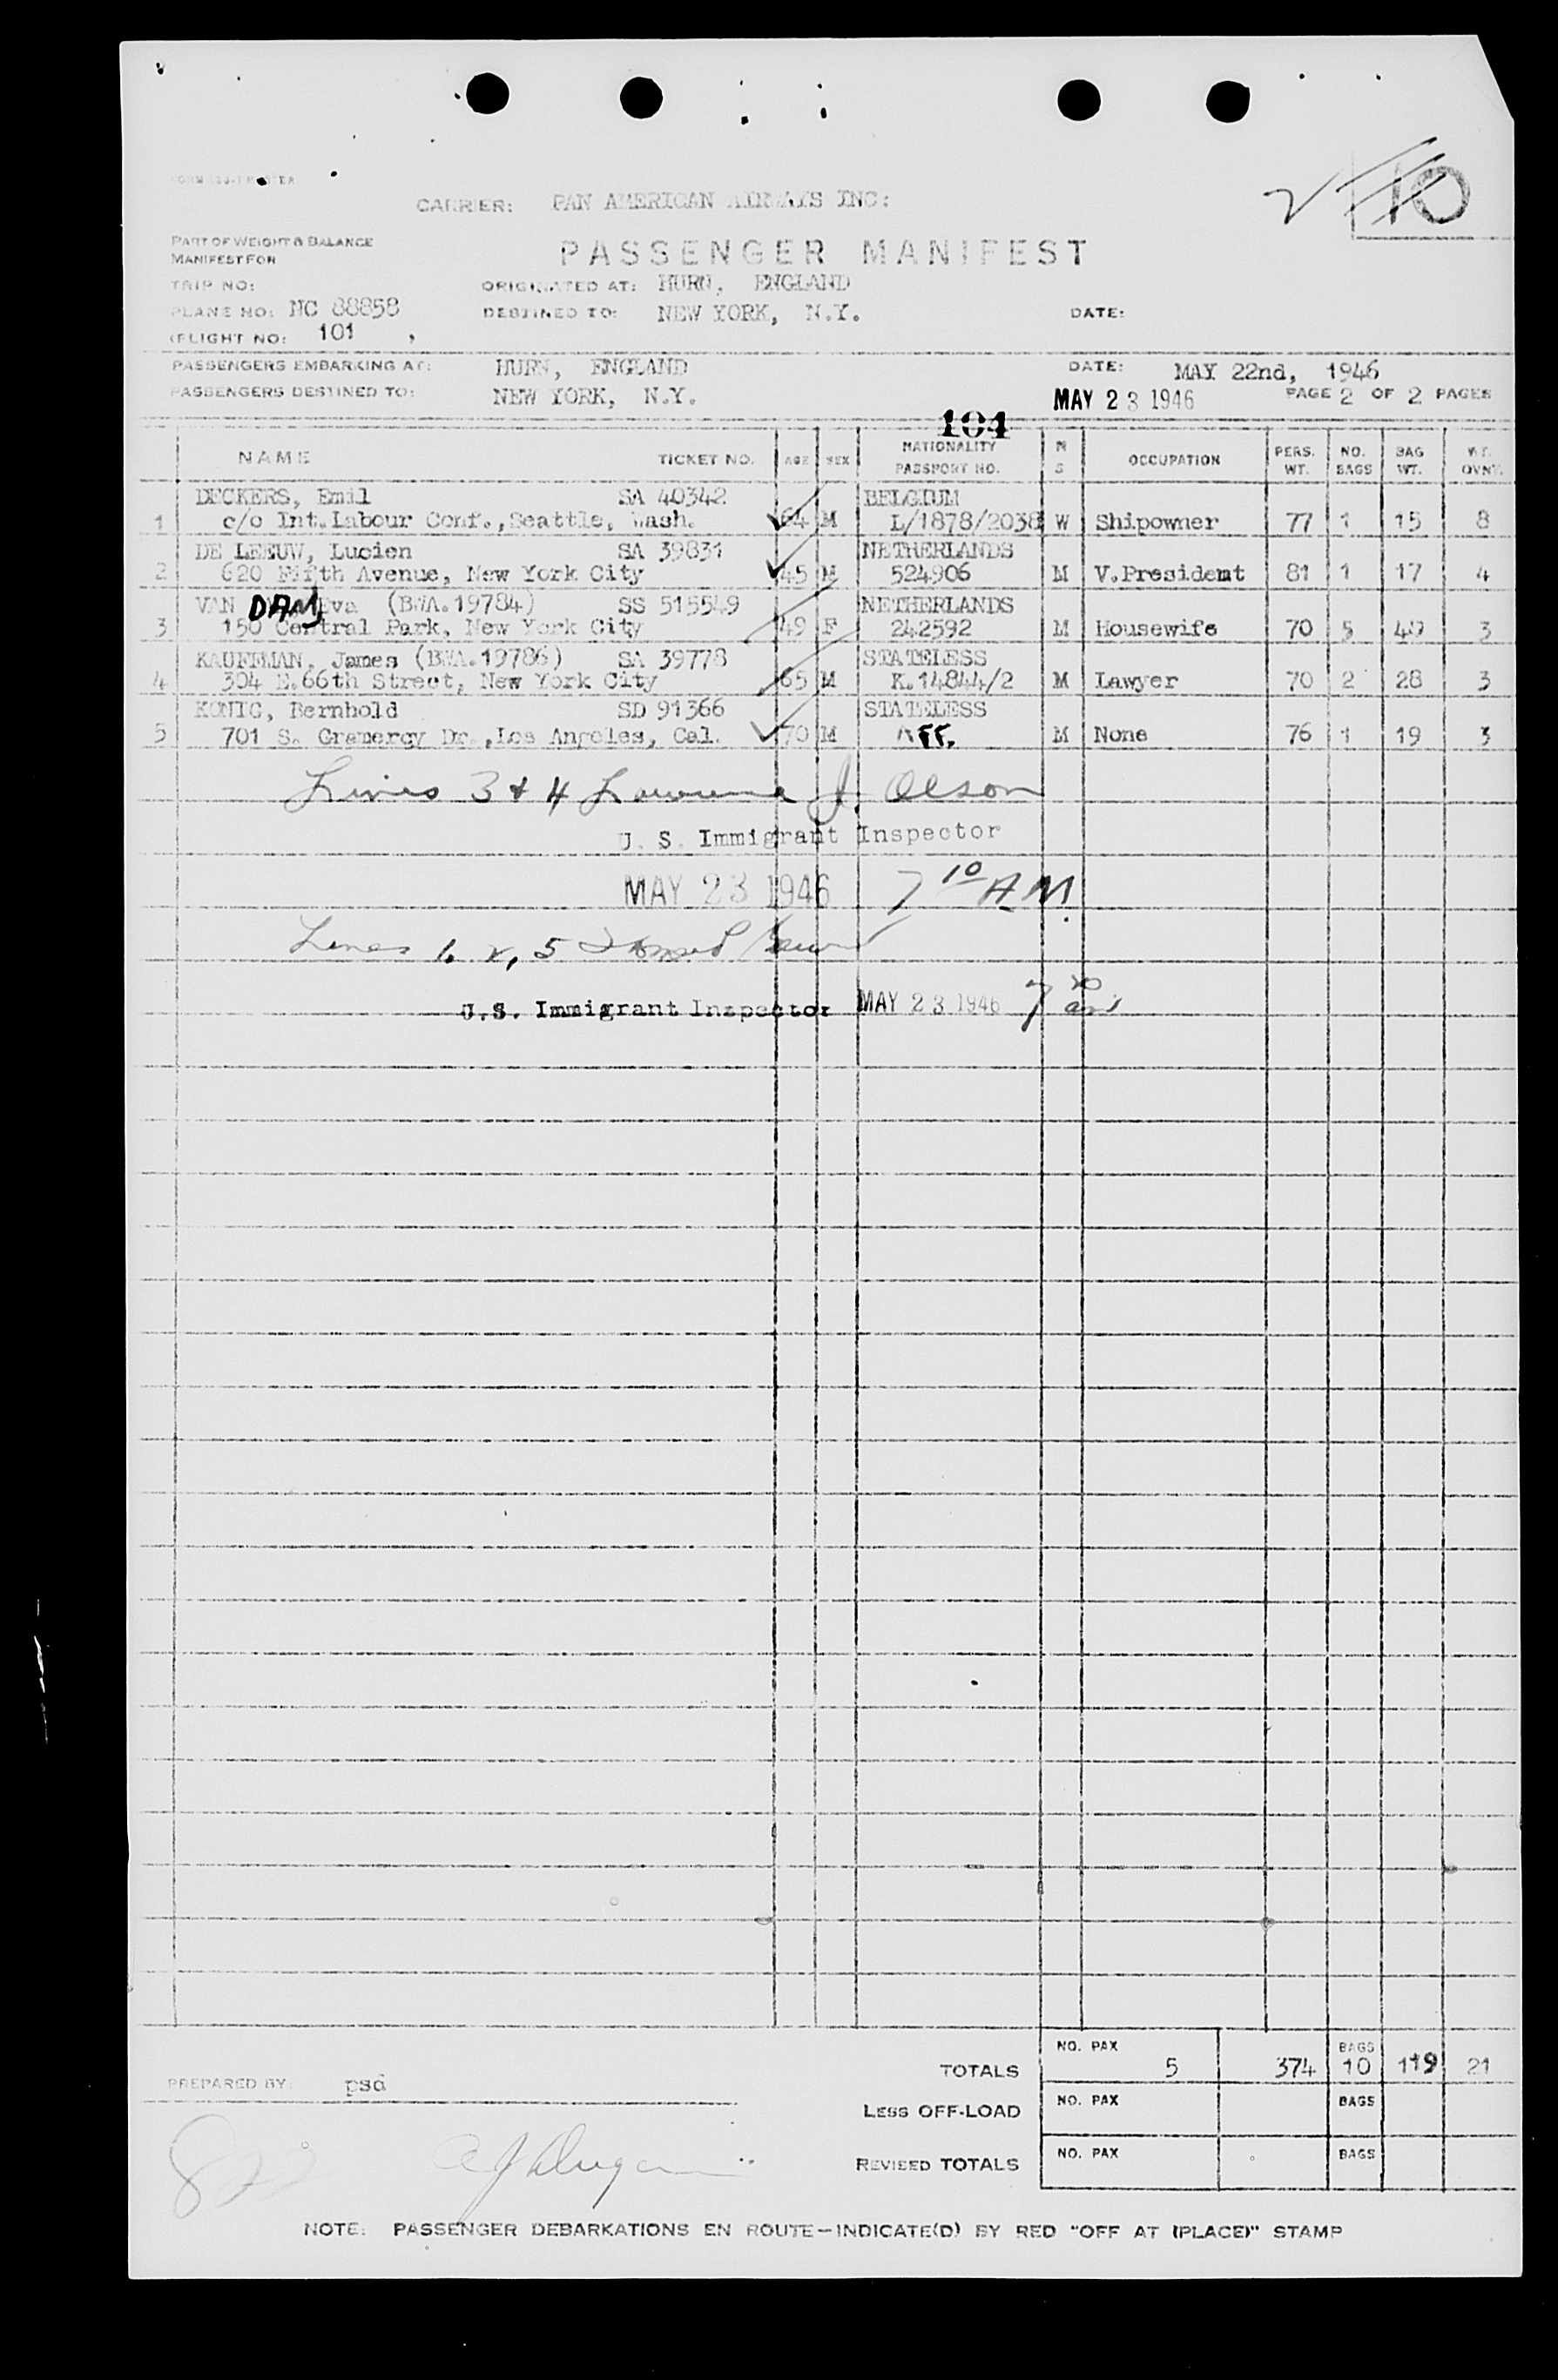 CARRIER: PAN AMERICAN AIRWAYS INC:
10
PART OF WEIGHT & BALANCE
MANIFEST FOR
PASSENGER MANIFEST
TRIP NO: ORIGINATED AT: HURN, ENGLAND
PLANE NO: NC 88858 DESTINED TO: NEW YORK, N.Y. DATE:
FLIGHT NO: 101 ,
PASSENGERS EMBARKING AT: HURN, ENGLAND DATE: MAY 22nd, 1946
PASSENGERS DESTINED TO: NEW YORK, N.Y. MAY 23 1946 PAGE 2 OF 2 PAGES
104
NAME TICKET NO. AGE SEX NATIONALITY PASSPORT NO. M S OCCUPATION PERS. WT. NO. BAGS BAG WT. WT. OVN'T
DECKERS, Emil SA 40342 BELGIUM
1 c/o Int.Labour Conf.,Seattle, Wash. 64 M L/1878/2038 W Shipowner 77 1 15 8
DE LEEUW, Lucien SA 39831 NETHERLANDS
2 620 Fifth Avenue, New York City 45 M 524906 M V.President 81 1 17 4
VAN DAM, Eva (BWA.19784) SS 515549 NETHERLANDS
3 150 Central Park, New York City 49 F 242592 M Housewife 70 5 40 3
KAUFFMAN, James (BWA.19786) SA 39778 STATELESS
4 304 E.66th Street, New York City 65 M K.14844/2 M Lawyer 70 2 28 3
KONIG, Bernhold SD 91366 STATELESS
5 701 S. Gramercy Dr.,Los Angeles, Cal. 70 M AFF. M None 76 1 19 3
Lines 3 & 4 Lawrence J. Olson
U. S. Immigrant Inspector
MAY 23 1946 7 10 A.M.
Lines 1, 2, 5
U.S. Immigrant Inspector MAY 23 1946 7
TOTALS NO. PAX 5 374 BAGS 10 119 21
PREPARED BY: psd
LESS OFF-LOAD NO. PAX BAGS
REVISED TOTALS NO. PAX BAGS
NOTE: PASSENGER DEBARKATIONS EN ROUTE—INDICATE(D) BY RED "OFF AT (PLACE)" STAMP